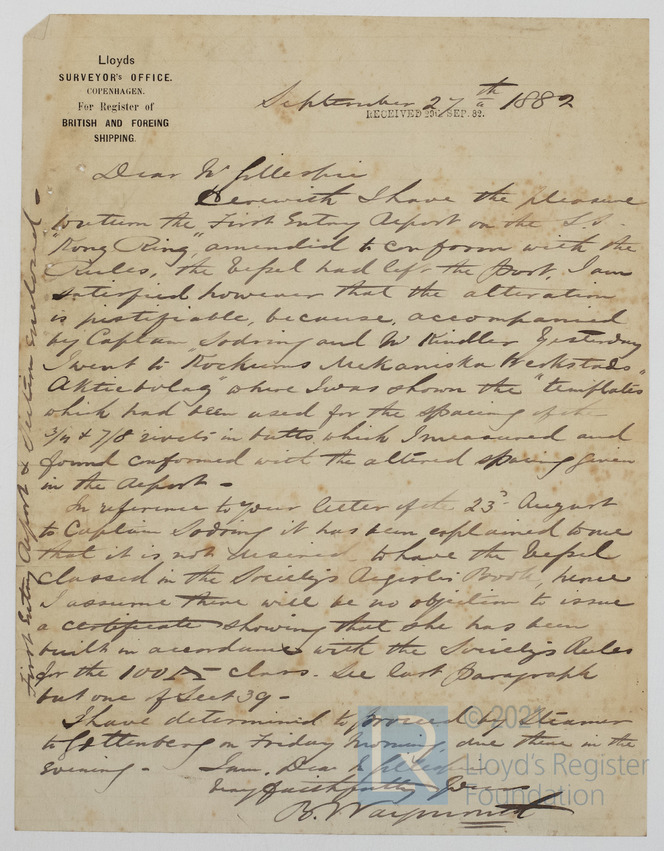 Lloyds
SURVEYOR'S OFFICE.
COPENHAGEN.
For Register of
BRITISH AND FOREING
SHIPPING.
September 27th 1882
RECEIVED 29 SEP. 82.
Dear Mr Gillespie
Herewith I have the pleasure
to return the First Entry Report on the S.S.
"Kong Ring," amended to conform with the
Rules, the Vessel had left the Port, I am
satisfied however that the alteration
is justifiable, because, accompanied
by Captain Sodring and Mr Kindler Yesterday
I went to Kockums Mekaniska Werkstads
Aktiebolag" where I was shown the "templates"
which had been used for the spacing of the
3/4 & 7/8 rivets in butts, which I measured and
found conformed with the altered spacing given
in the Report -
In reference to your letter of the 23d August
to Captain Sodring it has been explained to me
that it is not desired to have the Vessel
Classed in the Society's Register Book, hence
I assume there will be no objection to issue
a certificate showing that she has been
built in accordance with the Society's Rules
for the 100 A class. See last Paragraph
but one of Sect 39 -
I have determined to proceed by Steamer
to Gottenberg on Friday Morning, due there in the
evening - I am, Dear Mr Gillespie
Very faithfully Yrs
B. Waymouth
First Entry Report & Section enclosed -
© 202
Lloyd's Register
Foundation
LR